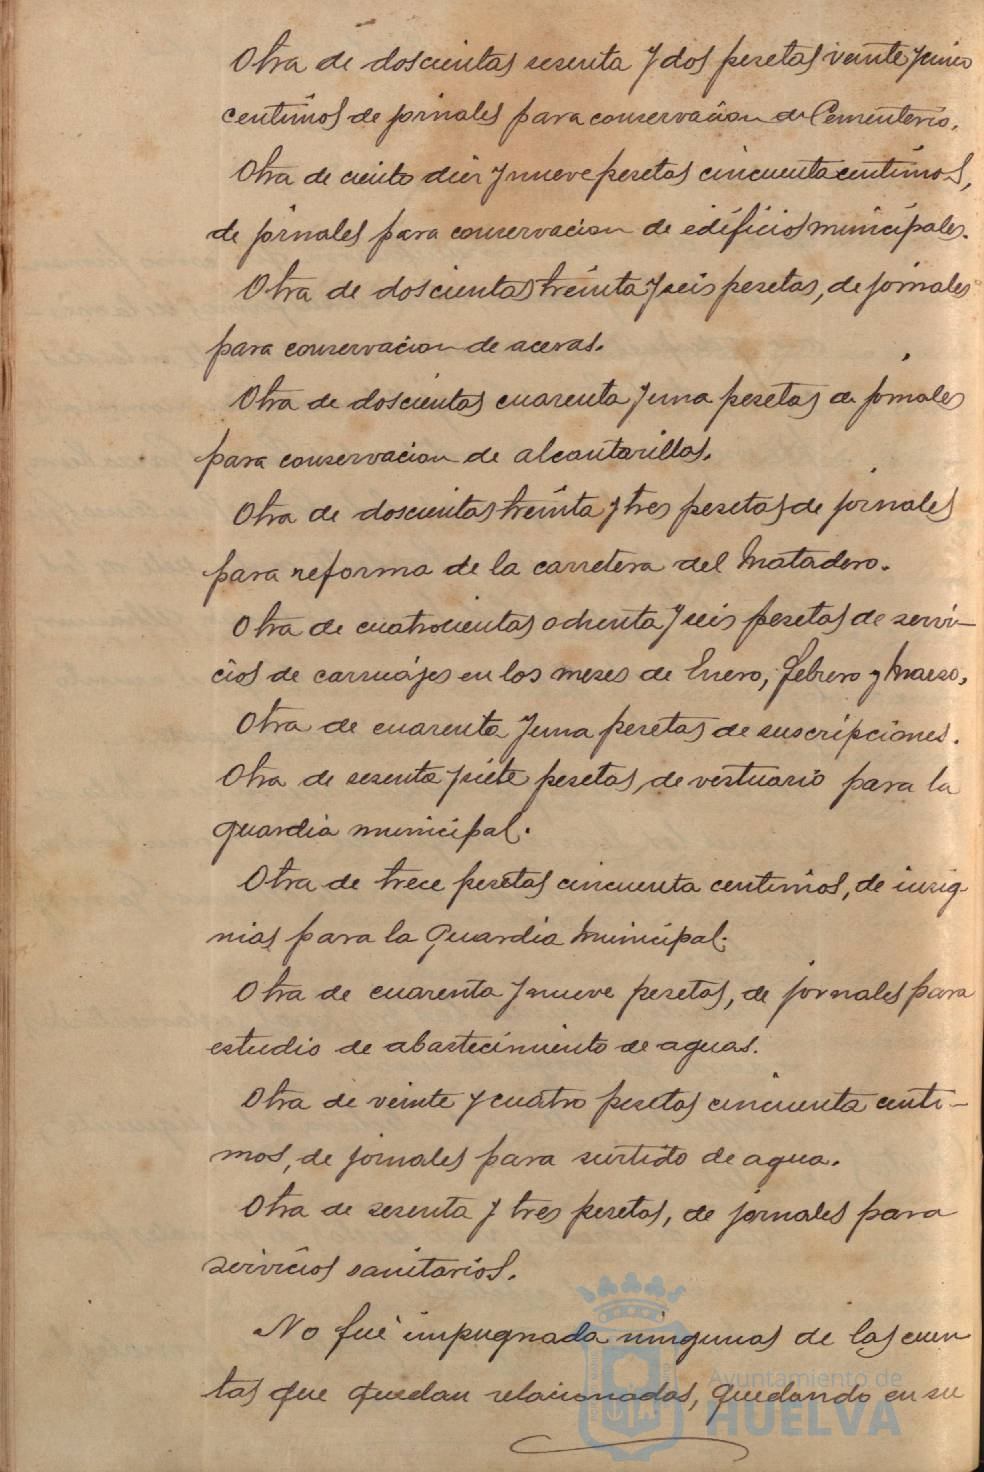 Otra de doscientas sesenta y dos pesetas veinte y cinco
centimos de jornales para conservacion de Cementerio.
Otra de ciento diez y nueve pesetas cincuenta centimos,
de jornales para conservacion de edificios municipales.
Otra de doscientas treinta y seis pesetas, de jornales
para conservacion de aceras.
Otra de doscientas cuarenta y una pesetas de jornales
para conservacion de alcantarillas.
Otra de doscientas treinta y tres pesetas de jornales
para reforma de la carretera del Matadero.
Otra de cuatrocientas ochenta y seis pesetas de servi-
cios de carruajes en los meses de Enero, Febrero y Marzo,
Otra de cuarenta y una pesetas de suscripciones.
Otra de sesenta y siete pesetas, de vestuario para la
guardia municipal.
Otra de trece pesetas cincuenta centimos, de insig
nias para la Guardia Municipal.
Otra de cuarenta y nueve pesetas, de jornales para
estudio de abastecimiento de aguas.
Otra de veinte y cuatro pesetas cincuenta centi-
mos, de jornales para surtido de agua.
Otra de sesenta y tres pesetas, de jornales para
servicios sanitarios.
No fué impugnada ningunas de las cuen
tas que quedan relacionadas, quedando en su
Ayuntamiento de
HUELVA